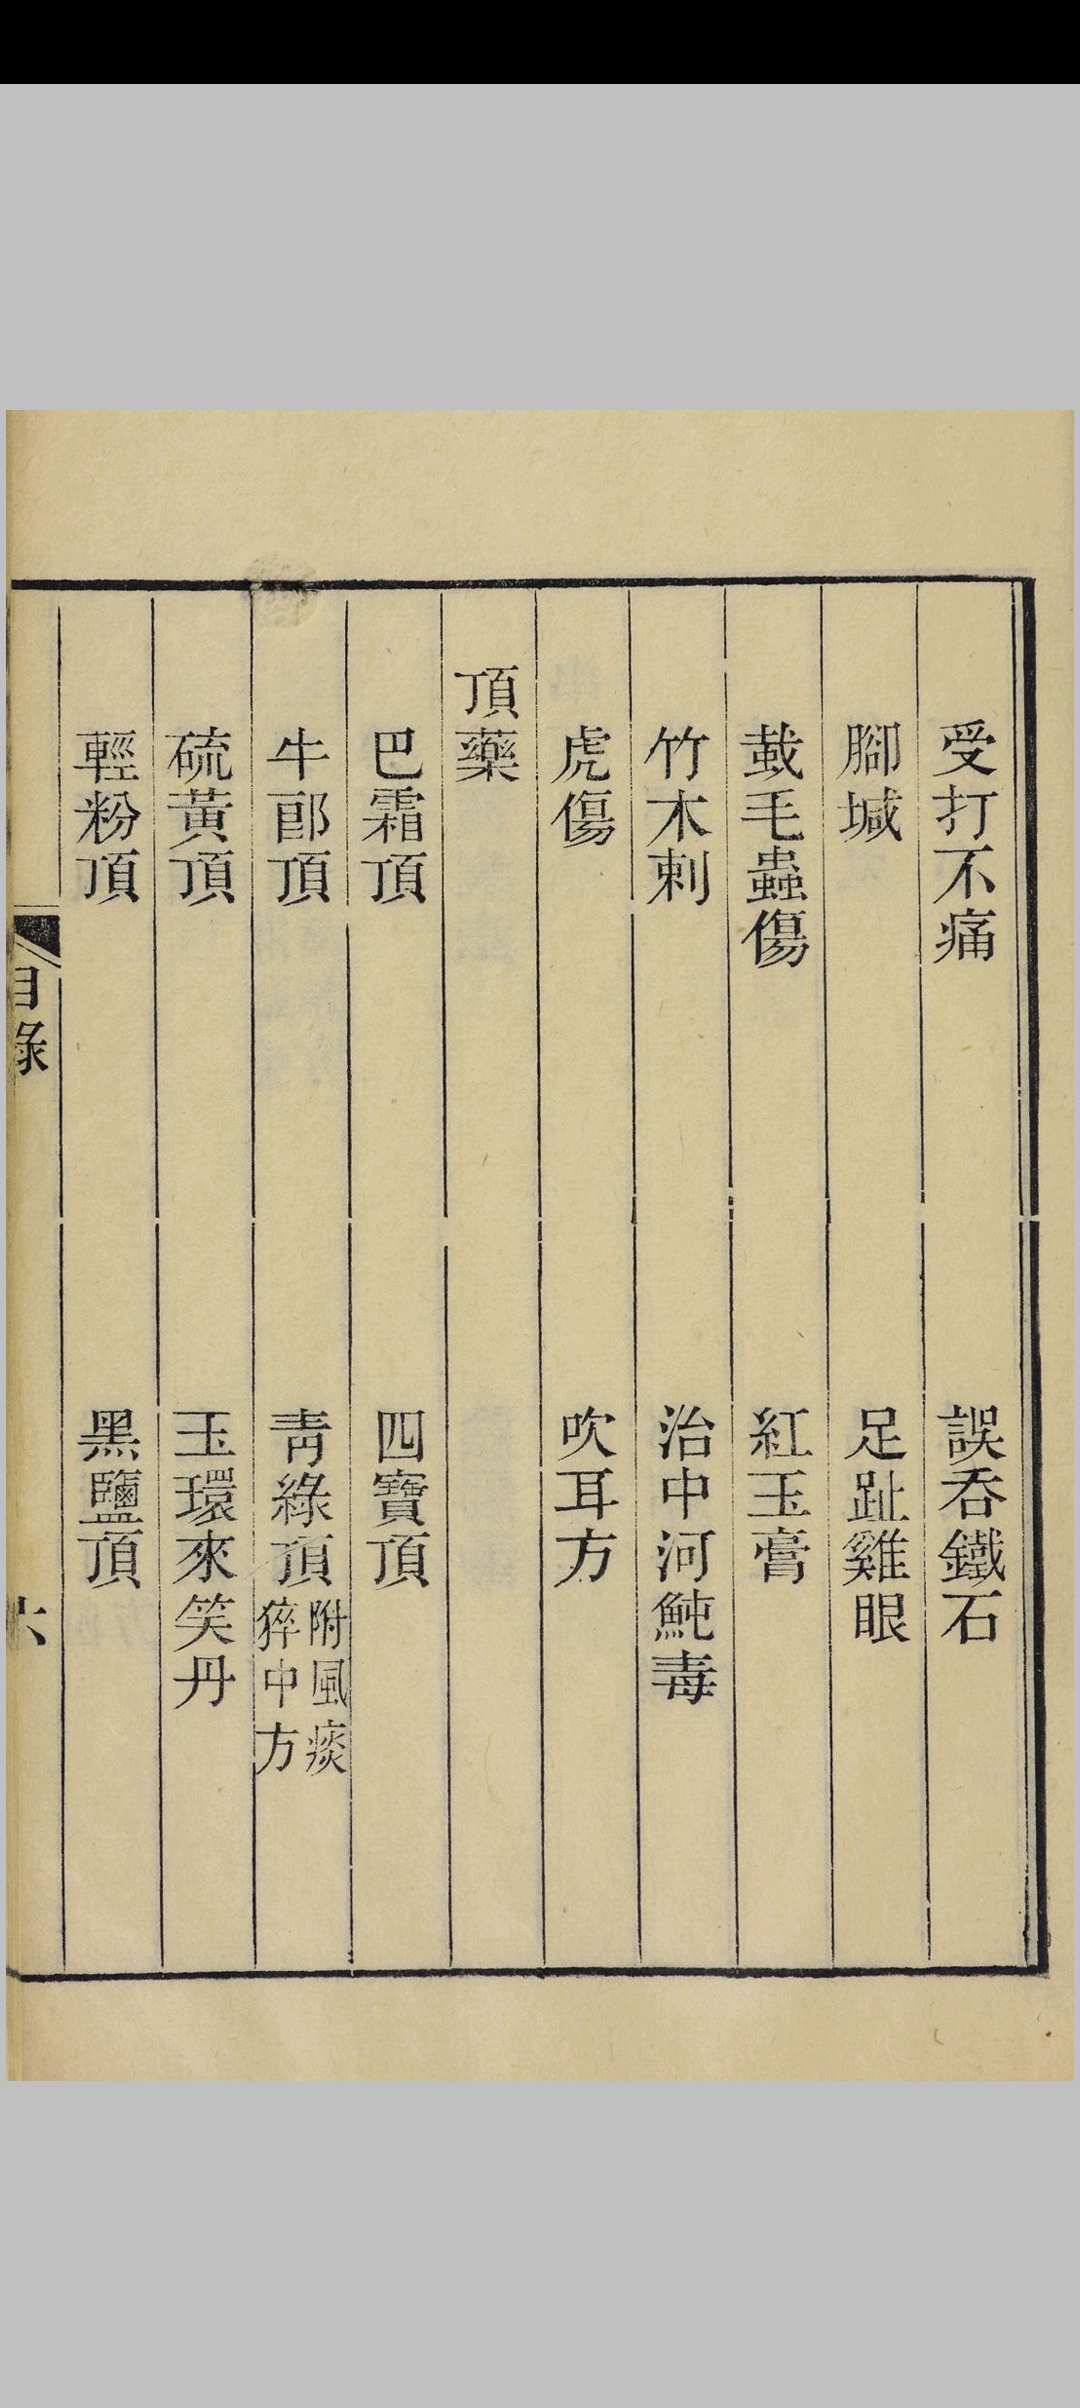 受打不痛　誤吞鐵石
腳墄　足趾雞眼
蛓毛蟲傷　紅玉膏
竹木刺　治中河魨毒
虎傷　吹耳方
頂藥
巴霜頂　四寶頂
牛郎頂　青綠頂 附風痰猝中方
硫黃頂　玉環來笑丹
輕粉頂　黑鹽頂
目錄
六